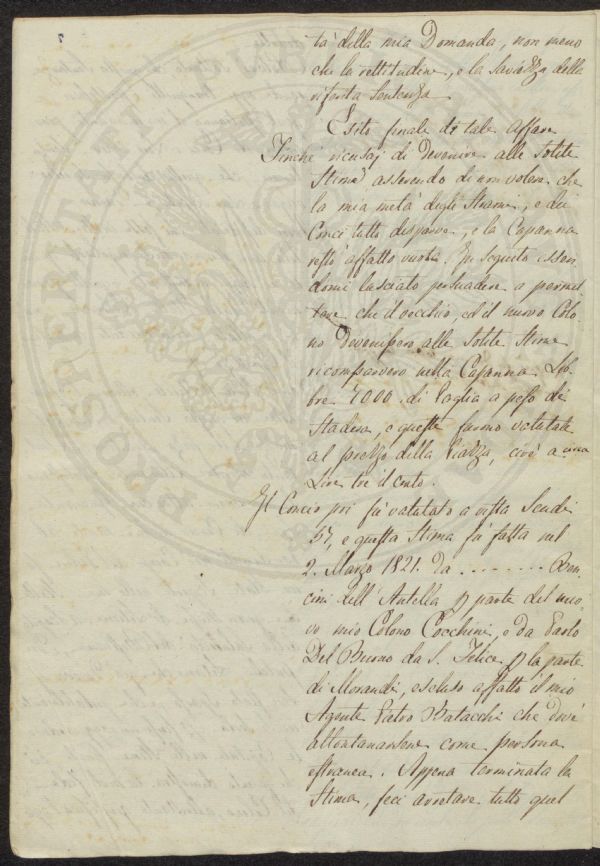 tà della mia Domanda, non meno
che la rettitudine, e la Saviezza della
rifferita Sentenza
Esito finale di tale affare
Finché ricusaj di Devenire alle Solite
Stime asserendo di non volere che
la mia metà degli Strami, e dei
Conci tutto disparve, e la Capanna
restò affatto vuota. In seguito essen
domi lasciato persuadere a permet
tere che il vecchio, ed il nuovo Colo
no Devenissero alle Solite Stime
ricomparvero nella Capanna Lib
bre 7000. di Paglia a peso di
Stadera, e queste furono valutate
al prezzo della Piazza, cioè a circa
Lire tre il cento.
Il Concio poi fù valutato a vista Scudi
57, e questa Stima fù fatta nel
2. Marzo 1821. da ........ Bon-
cini dell'Antella p parte del nuo-
vo mio Colono Cocchini, e da Paolo
Del Buono da S. Felice p la parte
di Morandi, escluso affatto il mio
Agente Pietro Batacchi che dovè
allontanarsene come persona
estranea. Appena terminata la
Stima, feci arretare tutto quel